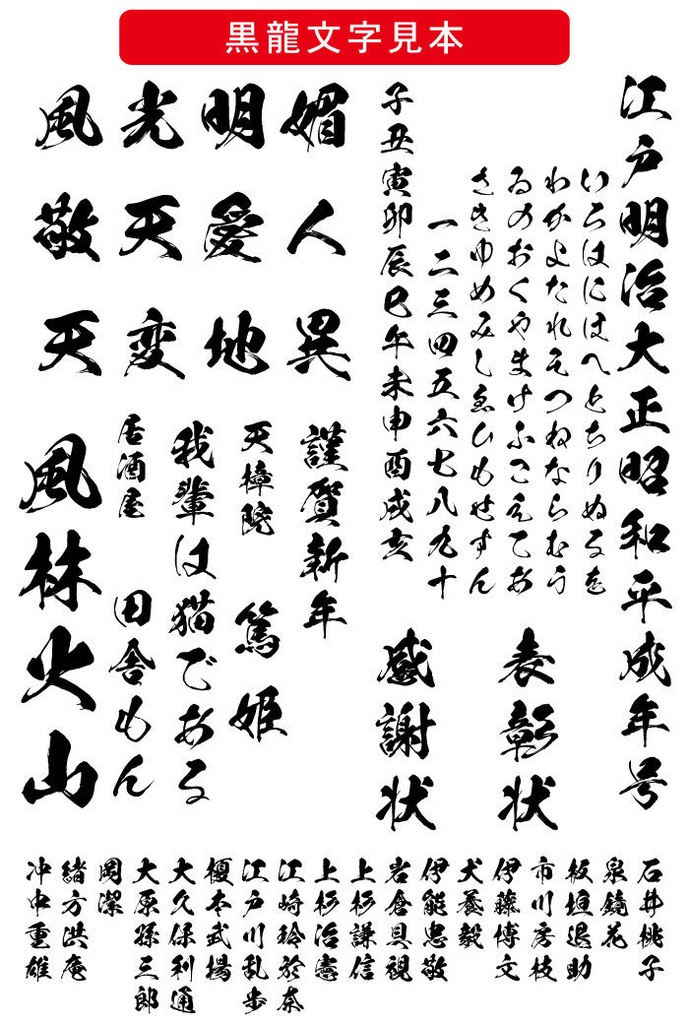 黒龍文字見本
江戸明治大正昭和平成年号
いろはにほへとちりぬるを
わかよたれそつねならむう
ゐのおくやまけふこえてあ
さきゆめみしゑひもせすん
一二三四五六七八九十
子丑寅卯辰巳午未申酉戌亥
表彰状
感謝状
媚人異
明愛地
光天変
風敬天
謹賀新年
天樟院 篤姫
我輩は猫である
居酒屋 田舎もん
風林火山
石井桃子
泉鏡花
板垣退助
市川房枝
伊藤博文
犬養毅
伊能忠敬
岩倉具視
上杉謙信
上杉治憲
江崎玲於奈
江戸川乱歩
榎本武揚
大久保利通
大原孫三郎
岡潔
緒方洪庵
沖中重雄